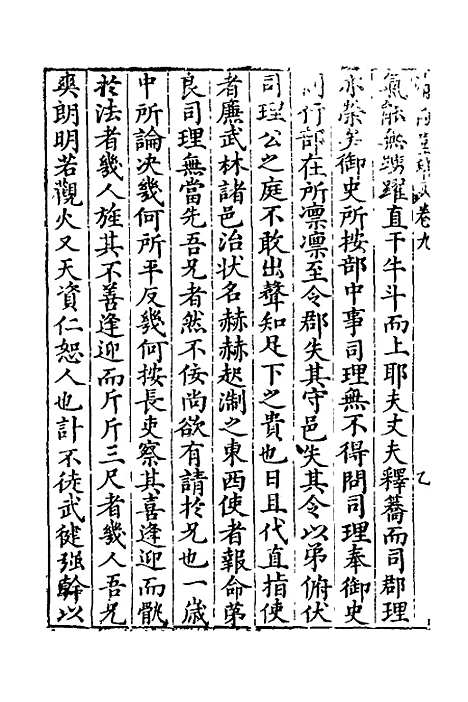 卷九
氣能無踴躍直干牛斗而上耶夫丈夫釋蕎而司郡理
亦榮矣御史所按部中事司理無不得問司理奉御史
行部在所凛凛至令郡失其守邑失其令以弟俯伏
司理公之庭不敢出聲知足下之貴也日且代直指使
者廉武林諸邑治状名赫赫起淛之東西使者報命苐
良司理無當先吾兄者然不佞尚欲有請扵兄也一歳
中所論决幾何所平反幾何按長吏察其喜逢迎而骪
扵法者幾人旌其不善逢迎而斤斤三尺者幾人吾兄
爽朗明若觀火又天資仁恕人也計不徒武健强幹以